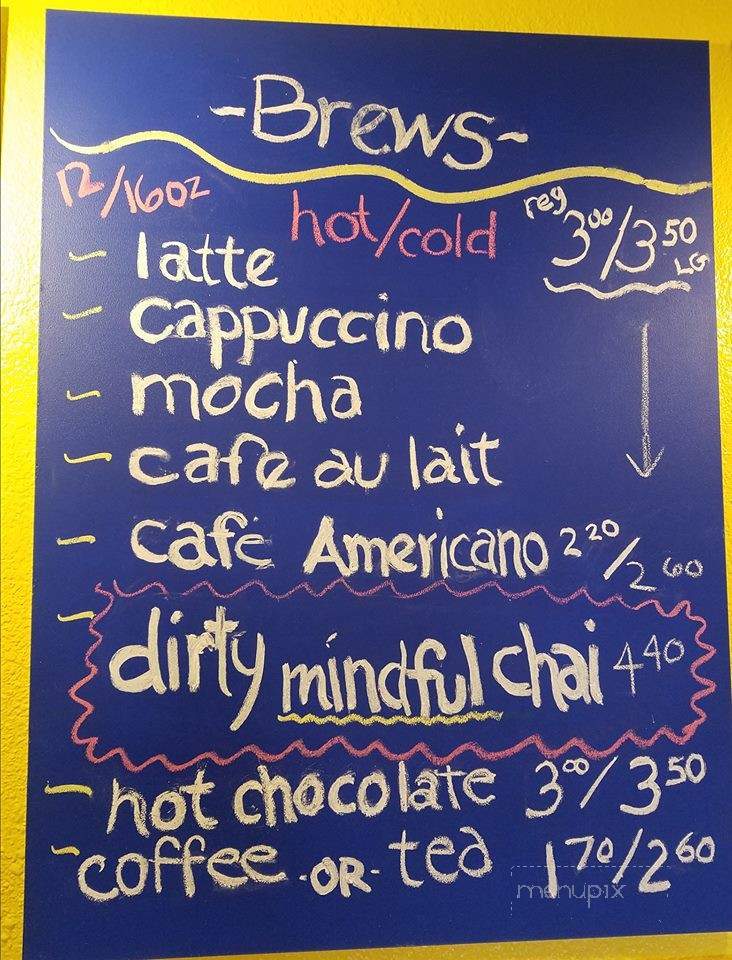 -Brews-
12/16oz hot/cold reg 3⁰⁰/3⁵⁰ LG
- latte
- cappuccino
- mocha
- cafe au lait
- cafe Americano 2²⁰/2⁶⁰
- dirty mindful chai 4⁴⁰
- hot chocolate 3⁰⁰/3⁵⁰
- coffee -OR- tea 1⁷⁰/2⁶⁰
menupix